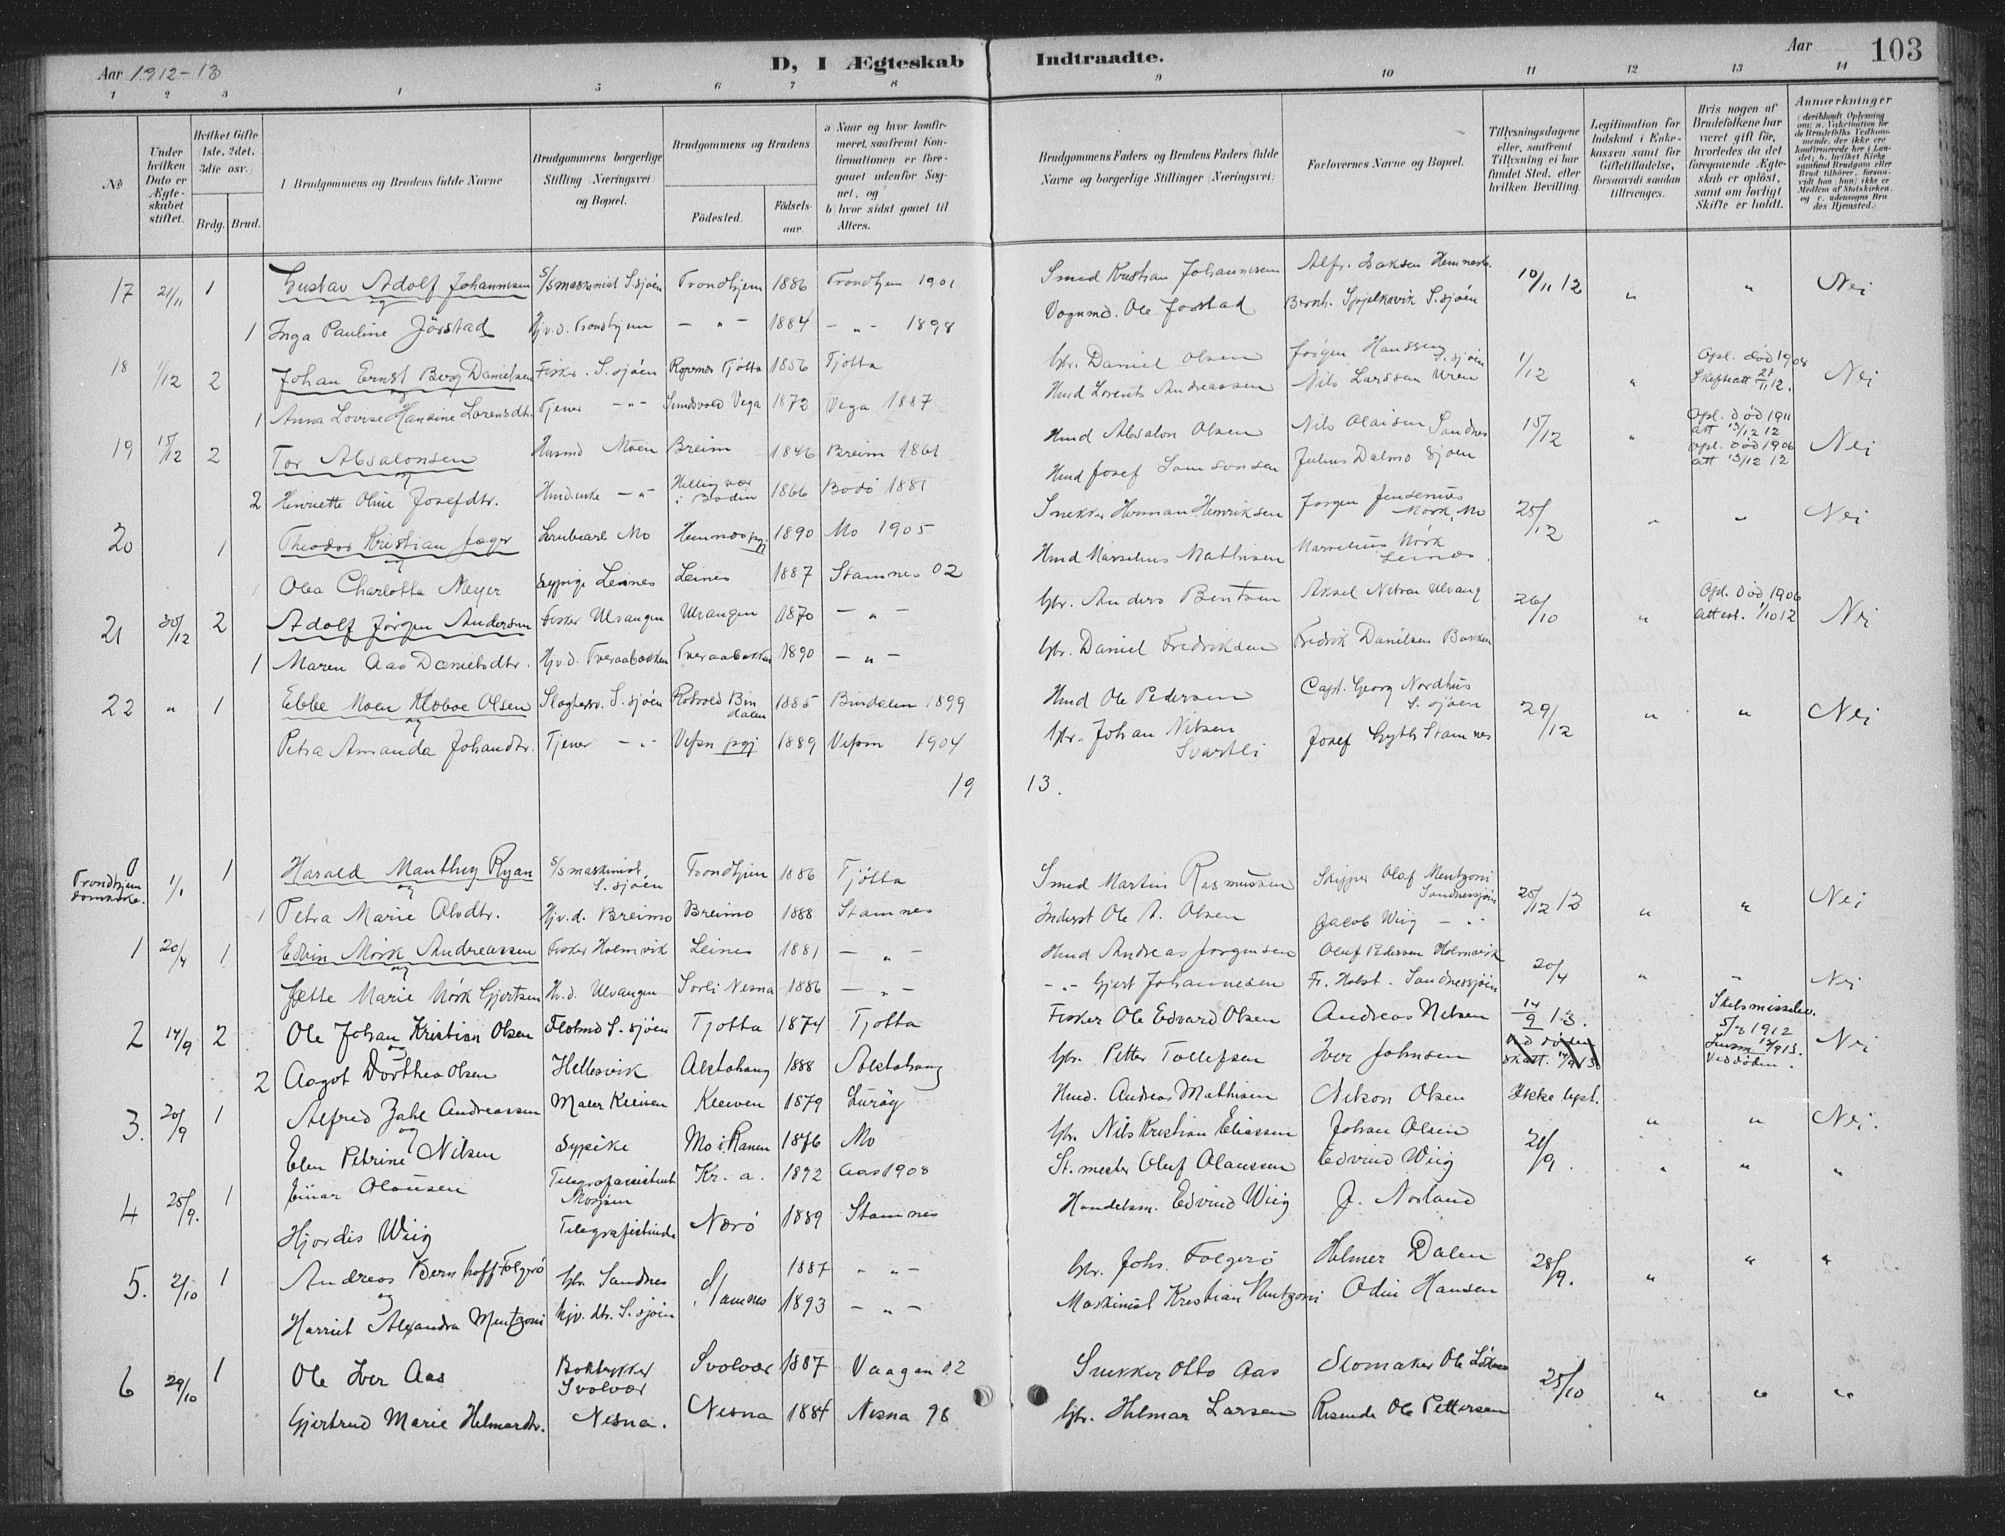 Aar 1912-13
D, I Ægteskab Indtraadte.
Aar
103
1 2 3 4 5 6 7 8 9 10 11 12 13 14
No
Under hvilken Dato er Ægteskabet stiftet.
Hvilket Gifte (1ste, 2det, 3die osv.)
Brdg. Brud.
Brudgommens og Brudens fulde Navne
Brudgommens borgerlige Stilling (Næringsvei) og Bopæl.
Brudgommens og Brudens
Födested.
Födselsaar.
a) Naar og hvor konfirmeret, saafremt Konfirmationen er foregaaet udenfor Sognet, og
b) hvor sidst gaaet til Alters.
Brudgommens Faders og Brudens Faders fulde Navne og borgerlige Stillinger (Næringsvei)
Forlovernes Navne og Bopæl.
Tillysningsdagene eller, saafremt Tillysning ei har fundet Sted, efter hvilken Bevilling.
Legitimation for Indskud i Enkekassen samt for Giftetilladelse, forsaavidt saadan tiltrænges.
Hvis nogen af Brudefolkene har været gift för, hvorledes da det foregaaende Ægteskab er oplöst, samt om lovligt Skifte er holdt.
Anmærkninger
17 21/11 1 Gustav Adolf Johannesen S/S maskinist S.sjöen Trondhjem 1886 Trondhjem 1901 Smed Kristian Johannesen 10/11 12 " " Nei
og
1 Inga Pauline Jörstad Hjv.d. Trondhjem - " - 1884 - " - 1898 Vognmd. Ole Jörstad Bernh. Spjelkavik S.sjöen
18 1/12 2 Johan Ernst Berg Danielsen Fisker S.sjöen Tjötta 1856 Tjötta Gbr. Daniel Olsen Jörgen Hanssen S.sjöen 1/12 " Opl. död 1908 Skifteatt 27/11 12. Nei
og
1 Anna Lovise Hansine Lorensdtr. Tjener - " - Sundsvold Vega 1872 Vega 1887 Hmd Lorents Andreassen Nils Larssen Uren
19 15/12 2 Tor Absalonsen Husmd Moen Breim 1846 Breim 1861 Hmd Absalon Olsen Nils Olaisen Sandnes 15/12 " Opl. död 1911 att 13/12 12 Nei
og
2 Henriette Oline Josefdtr. Hmd.enke - " - Helligvær i Bodin 1866 Bodö 1881 Hmd Josef Samsonsen Julius Dalmo Sjöen opl. död 1906 att 13/12 12
20 1 Theodor Kristian Jæger Mo Hemnes pgj 1890 Mo 1905 Snekker Herman Henriksen Jörgen Jensenius Mörk, Mo 25/12 " " Nei
og
1 Olea Charlotte Meyer Sypige Leines Leines 1887 Stamnes 02 Hmd Marselius Mathisen Marselius Mörk Leines.
21 30/12 2 Adolf Jörgen Andersen Fisker Ulvangen Ulvangen 1870 - " - Gbr. Anders Bentsen Aksel Nilsen Ulvang 26/10 " Opl. död 1906 Attest. 1/10 12 Nei
og
1 Maren Aas Danielsdtr. Hjv.d. Tveraabakken Tveraabakken 1890 - " - Gbr. Daniel Fredriksen Fredrik Danielsen Bakken
22 " 1 Ebbe Moen Klæboe Olsen S.sjöen Bindalen 1885 Bindalen 1899 Hmd Ole Pedersen Capt. Georg Nordhus S.sjöen 29/12 " " Nei
og
Petra Amanda Johandtr. Tjener - " - Vefsn pgj 1889 Vefsn 1904 Gbr. Johan Nilsen Svartli Josef Stamnes
1913.
0 Trondhjem domkirke. 1/1 1 Harald Manthey Ryan S/S maskinist S.sjöen Trondhjem 1886 Tjötta Smed Martin Rasmussen Skipper Olaf Mentzoni Sandnessjöen 28/12 13 " " Nei
og
1 Petra Marie Olsdtr. Hjv.d. Breimo Breimo 1888 Stamnes Inderst Ole A. Olsen Jacob Wiig - " -
1 20/4 1 Edvin Mörk Andreassen Fisker Holmvik Leines 1881 - " - Hmd Andreas Jörgensen Oluf Pedersen Holmvik 20/4 " " Nei
og
Jette Marie Mörk Gjertsen Hv.d. Ulvangen Sörli Nesna 1886 - " - - " - Gjert Johannesen Fr. Holst. Sandnessjöen
2 14/9 2 Ole Johan Kristian Olsen S.sjöen Tjötta 1874 Tjötta Fisker Ole Edvard Olsen Andreas Nilsen 14/9 13. Skilsmissebev. 5/3 1912 Nei
og
2 Aagot Dorthea Olsen Hellesvik Alstahaug 1888 Alstahaug Gbr. Petter Tollefsen Iver Johnsen Ved döden.
3. 20/9 1 Alfred Zahl Andreassen Maler Kleiven Kleiven 1879 Luröy Hmd. Andreas Mathisen Nelson Olsen Ikke lyst. " " Nei.
og
Elen Petrine Nilsen Sypike Mo i Ranen 1876 Mo Gbr. Nils Kristian Eliassen Johan Olsen
4 25/9. 1 Einar Olausen Telegrafassistent Mosjöen Kr.a. 1892 Aas 1908 St.mester Oluf Olaussen Edvind Wiig 21/9. " " "
Hjordis Wiig Telegrafistinde Nærö 1889 Stamnes Handelsm. Edvind Wiig J. Norland
5. 2/10 1 Andreas Bernhoff Folgerö Gbr. Sandnes Stamnes 1887 - " - Gbr. Johs. Folgerö Helmer Dalen 28/9. " " "
og
Harriet Alexandra Mentzoni Hjv.dtr. S.sjöen 1893 - " - Maskinist Kristian Mentzoni Odin Hansen
6 29/10 1 Ole Iver Aas Boktrykker Svolvær Svolvær 1887 Vaagan 02 Snekker Otto Aas Skomaker Ole 25/10 " " "
Gjertrud Marie Helmersdtr. Nesna. Nesna 1884 Nesna 98 Gbr. Hilmar Larsen Ole Pettersen